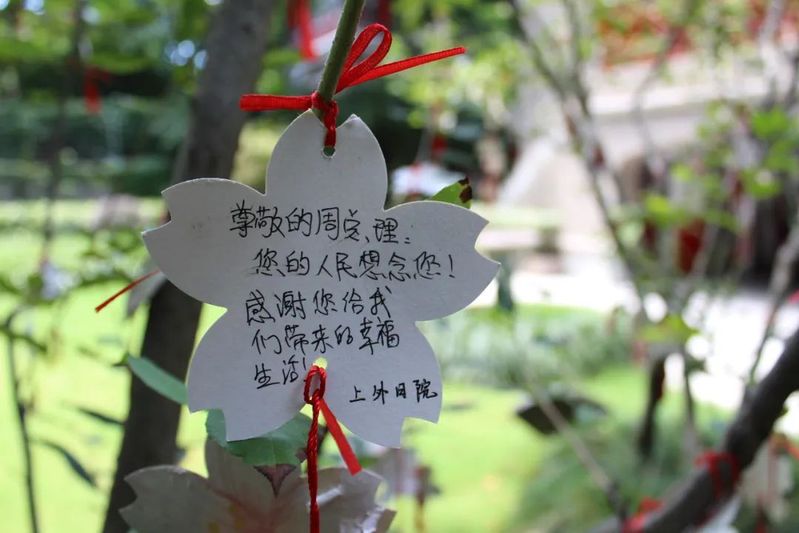 尊敬的周总理：
您的人民想念您！
感谢您给我
们带来的幸福
生活！
上外日院